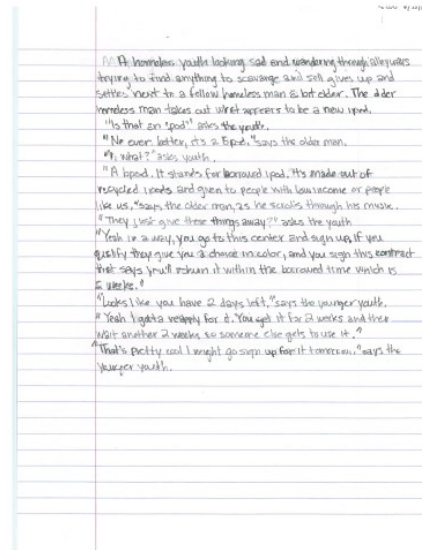 A homeless youth looking sad and wandering through alleyways
trying to find anything to scavange and sell gives up and
settles next to a fellow homeless man a bit older. The older
homeless man takes out what appears to be a new ipod.
"Is that an ipod?" asks the youth.
"No even better, its a bpod," says the older man.
"A what?" asks youth.
"A bpod. It stands for borrowed ipod. It's made out of
recycled ipods and given to people with low income or people
like us," says the older man, as he scrolls through his music.
"They just give these things away?" asks the youth
"Yeah in a way, you go to this center and sign up, if you
qualify they give you a choice in color, and you sign this contract
that says you'll return it within the borrowed time which is
2 weeks."
"Looks like you have 2 days left," says the younger youth.
"Yeah I gotta reapply for it. You get it for 2 weeks and then
wait another 2 weeks so someone else gets to use it."
"That's pretty cool I might go sign up for it tomorrow," says the
younger youth.